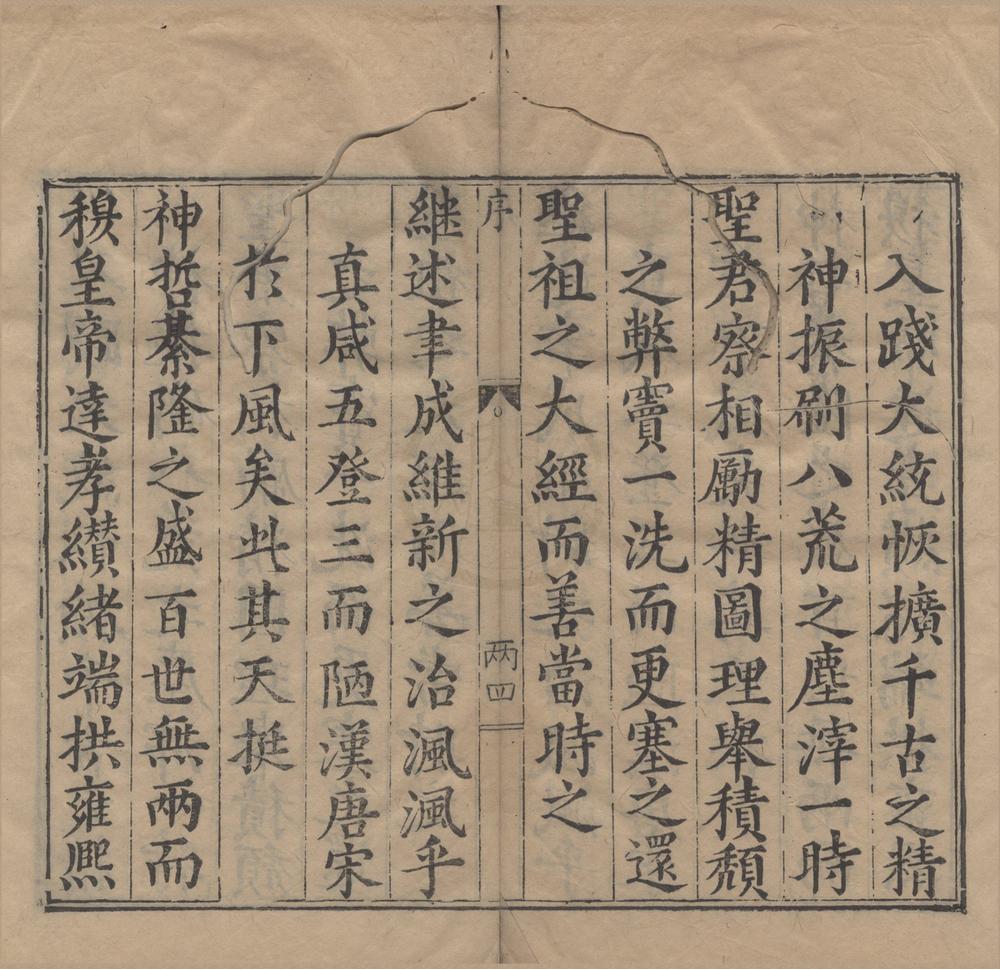 入踐大統恢擴千古之精
神振刷八荒之塵滓一時
聖君察相勵精圖理舉積頹
之弊竇一洗而更塞之還
聖祖之大經而善當時之
序
两四
継述聿成維新之治渢渢乎
真咸五登三而陋漢唐宋
扵下風矣此其天挺
神哲綦隆之盛百世無兩而
穆皇帝達孝纉緒端拱雍熈